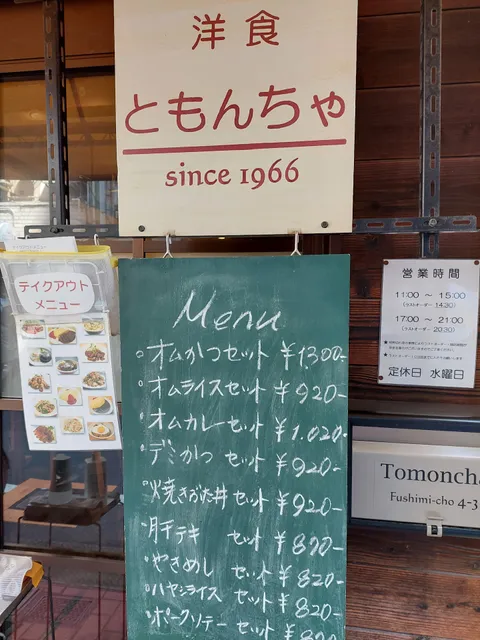 洋食
ともんちゃ
since 1966
テイクアウト
メニュー
Menu
・オムかつセット ¥1,300-
・オムライスセット ¥920-
・オムカレーセット ¥1,020-
・デミかつ セット ¥920-
・焼きぶた丼 セット ¥920-
・肝テキ セット ¥870-
・やきめし セット ¥820-
・ハヤシライス セット ¥820-
・ポークソテー セット
営業時間
11:00 ～ 15:00
(ラストオーダー 14:30)
17:00 ～ 21:00
(ラストオーダー 20:30)
定休日 水曜日
Tomoncha
Fushimi-cho 4-3